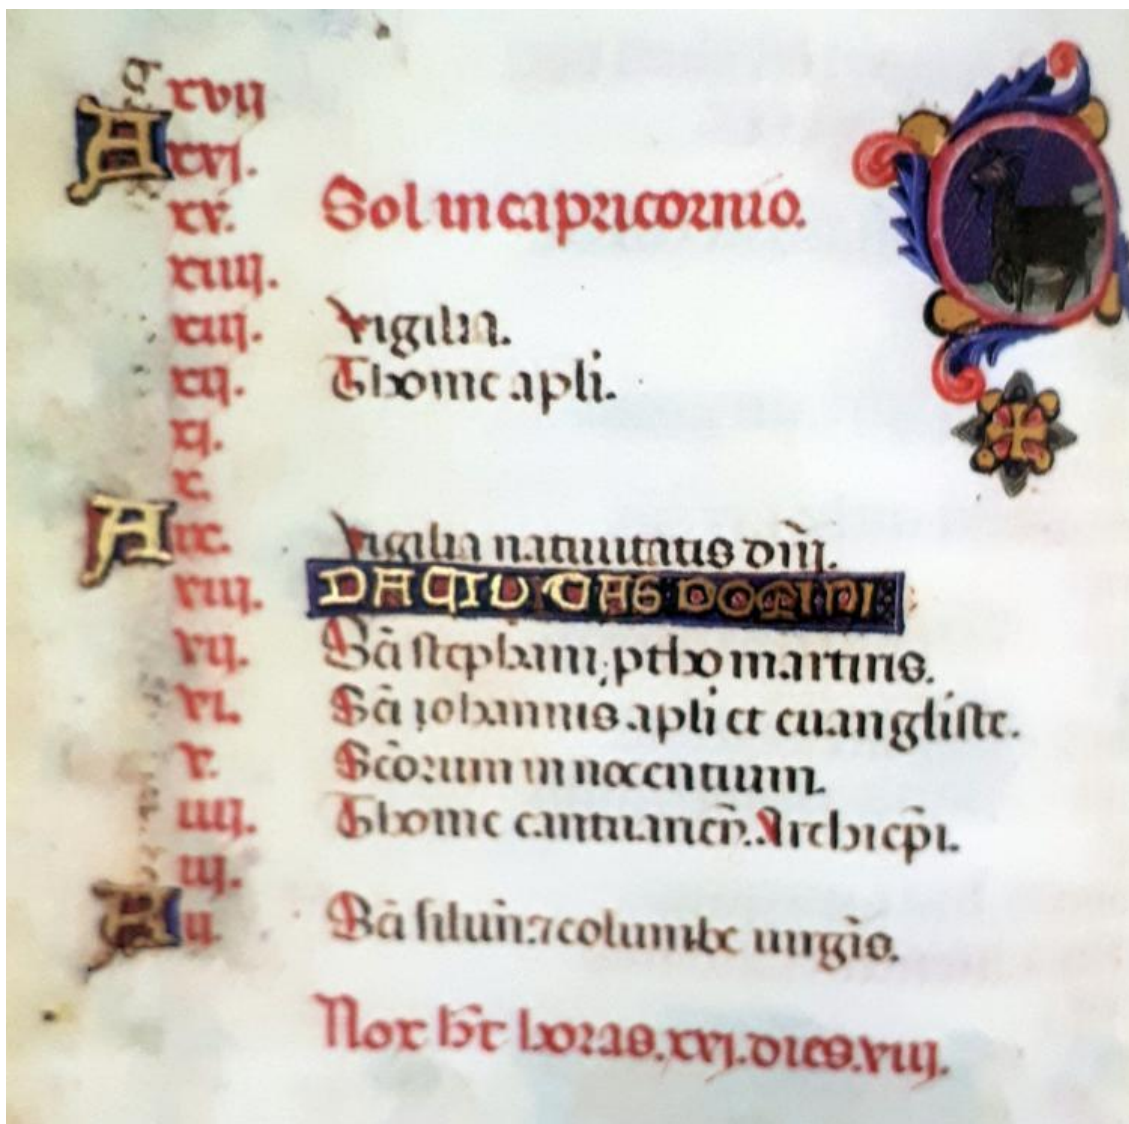 xvij
A xvj.
xv. Sol in capricornio.
xiiij.
xiij. Vigilia.
xij. Thome apli.
xj.
x.
A ix. Vigilia natiuitatis dñi.
viij. NATIUITAS DOMINI
vij. Sā stephani ptho martiris.
vi. Sā johannis apli et euangliste.
v. Scōrum innocentium.
iiij. Thome cantuarieñ. Archiep̄i.
iij.
A ij. Sā siluūi ⁊ columbe uirgīs.
Nox h̄t horas. xvj. dies. viij.